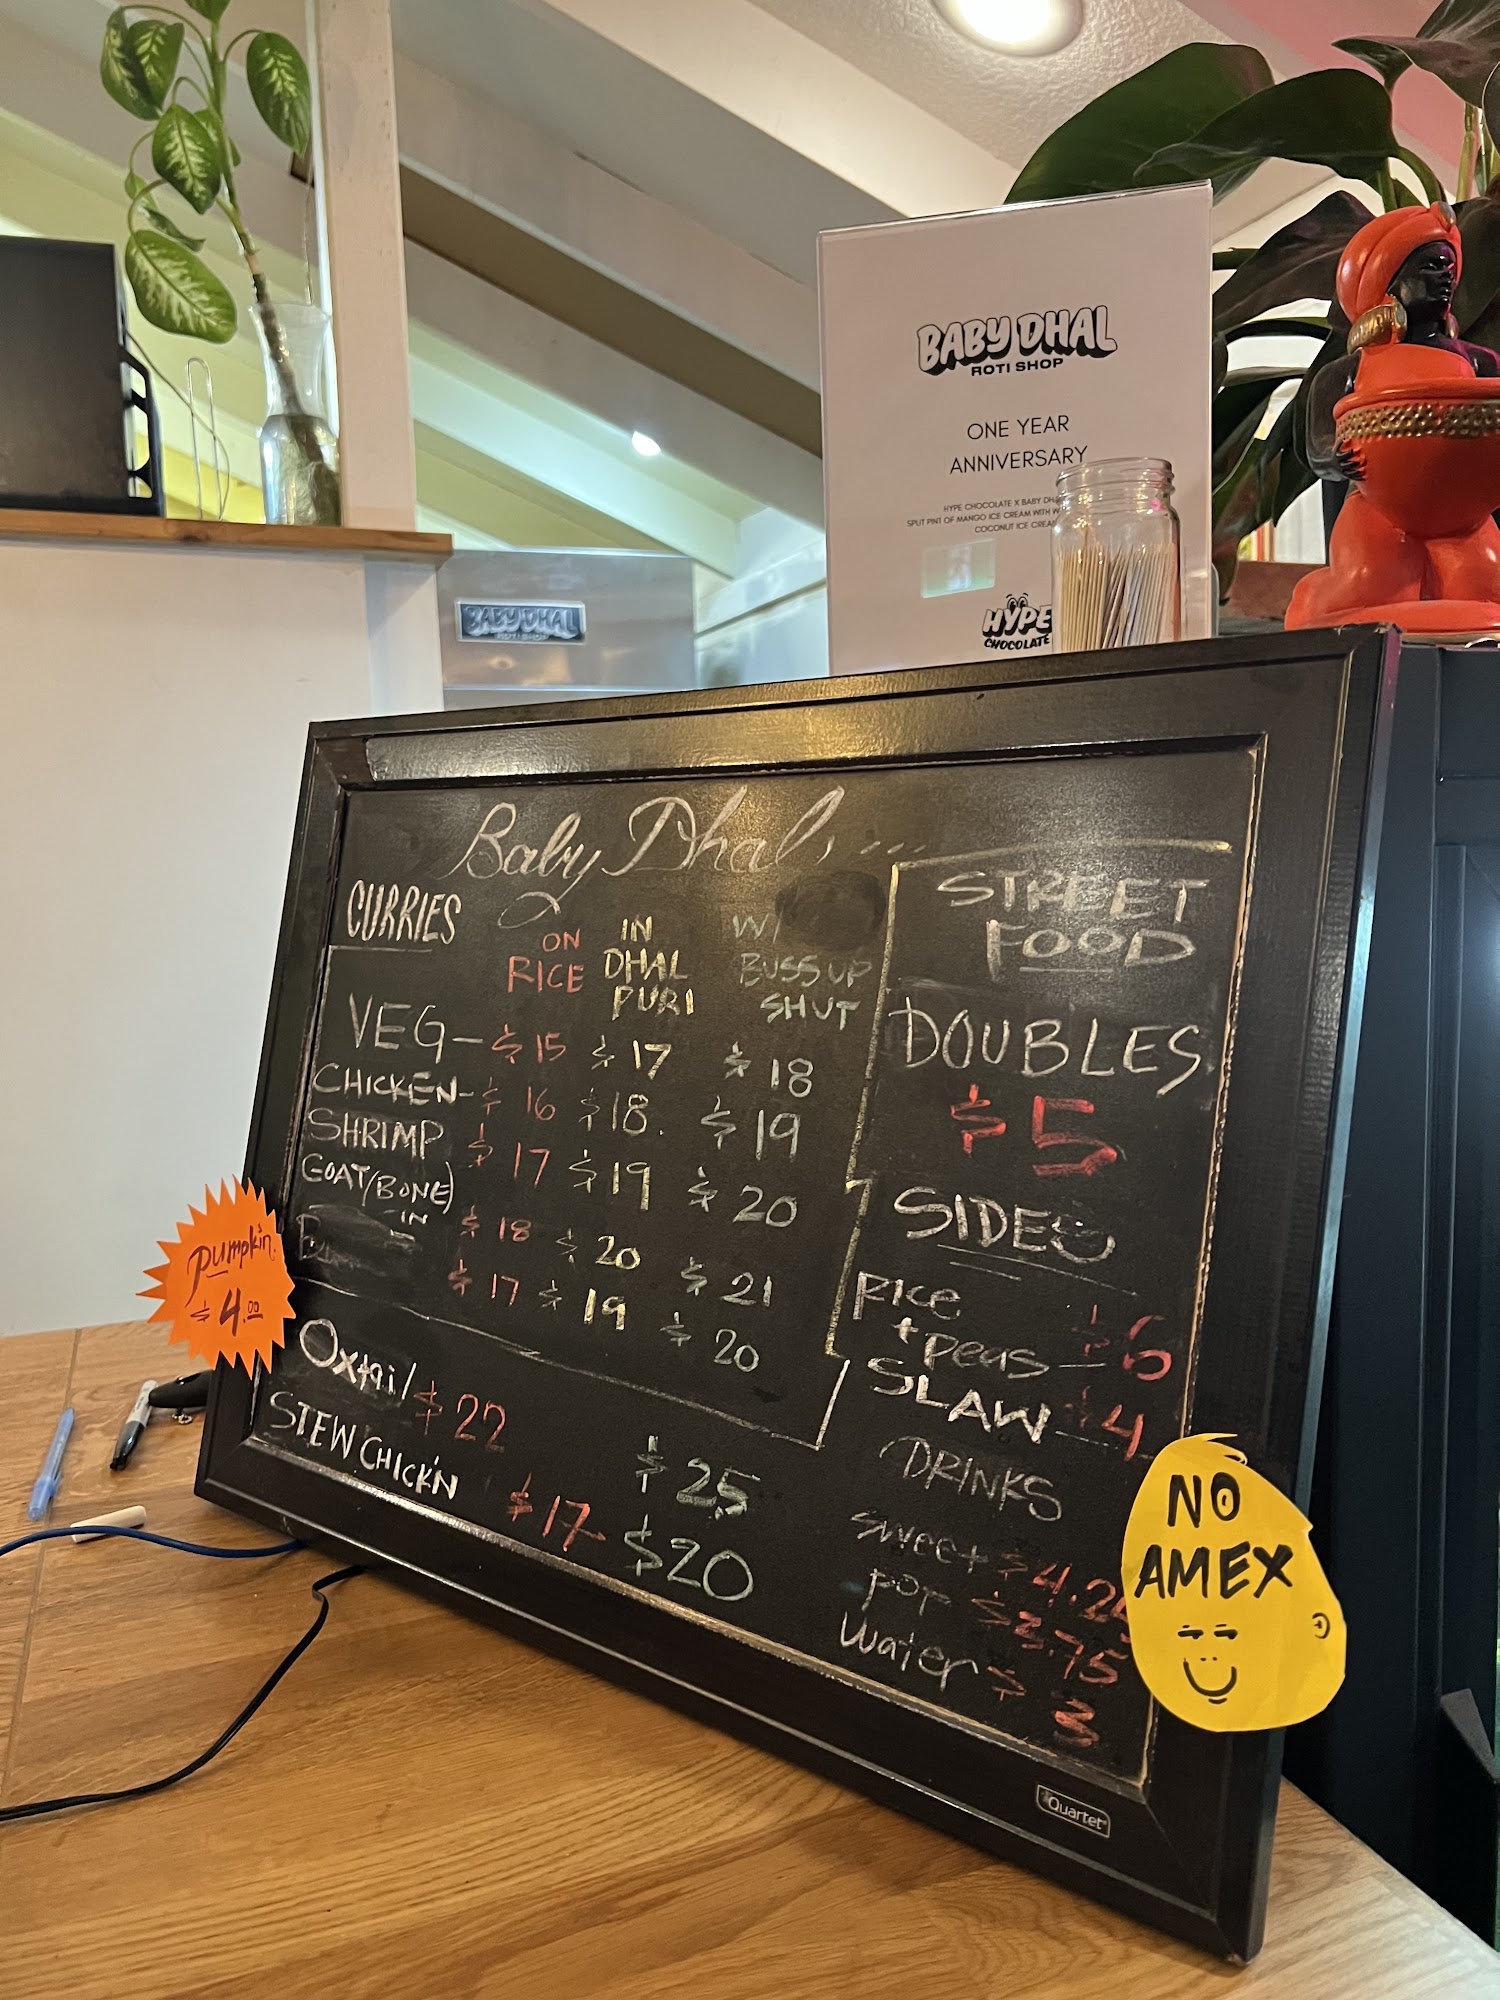 BABY DHAL
ROTI SHOP
ONE YEAR
ANNIVERSARY
HYPE CHOCOLATE X BABY
SPLIT PINT OF MANGO ICE CREAM WITH
COCONUT ICE
HYPE
CHOCOLATE
BABY DHAL
ROTI SHOP
Baby Dhal
CURRIES
ON RICE
IN DHAL PURI
W/ BUSS UP SHUT
VEG - $15 $17 $18
CHICKEN - $16 $18. $19
SHRIMP $17 $19 $20
GOAT (BONE IN) $18 $20 $21
$17 $19 $20
Oxtail $22 $25
STEW CHICK'N $17 $20
STREET
FOOD
DOUBLES
$5
SIDES
Rice
+ peas - $6
SLAW - $4
DRINKS
Sweet $4.2
POP $3.75
Water $3
pumpkin
$4.00
NO
AMEX
Quartet